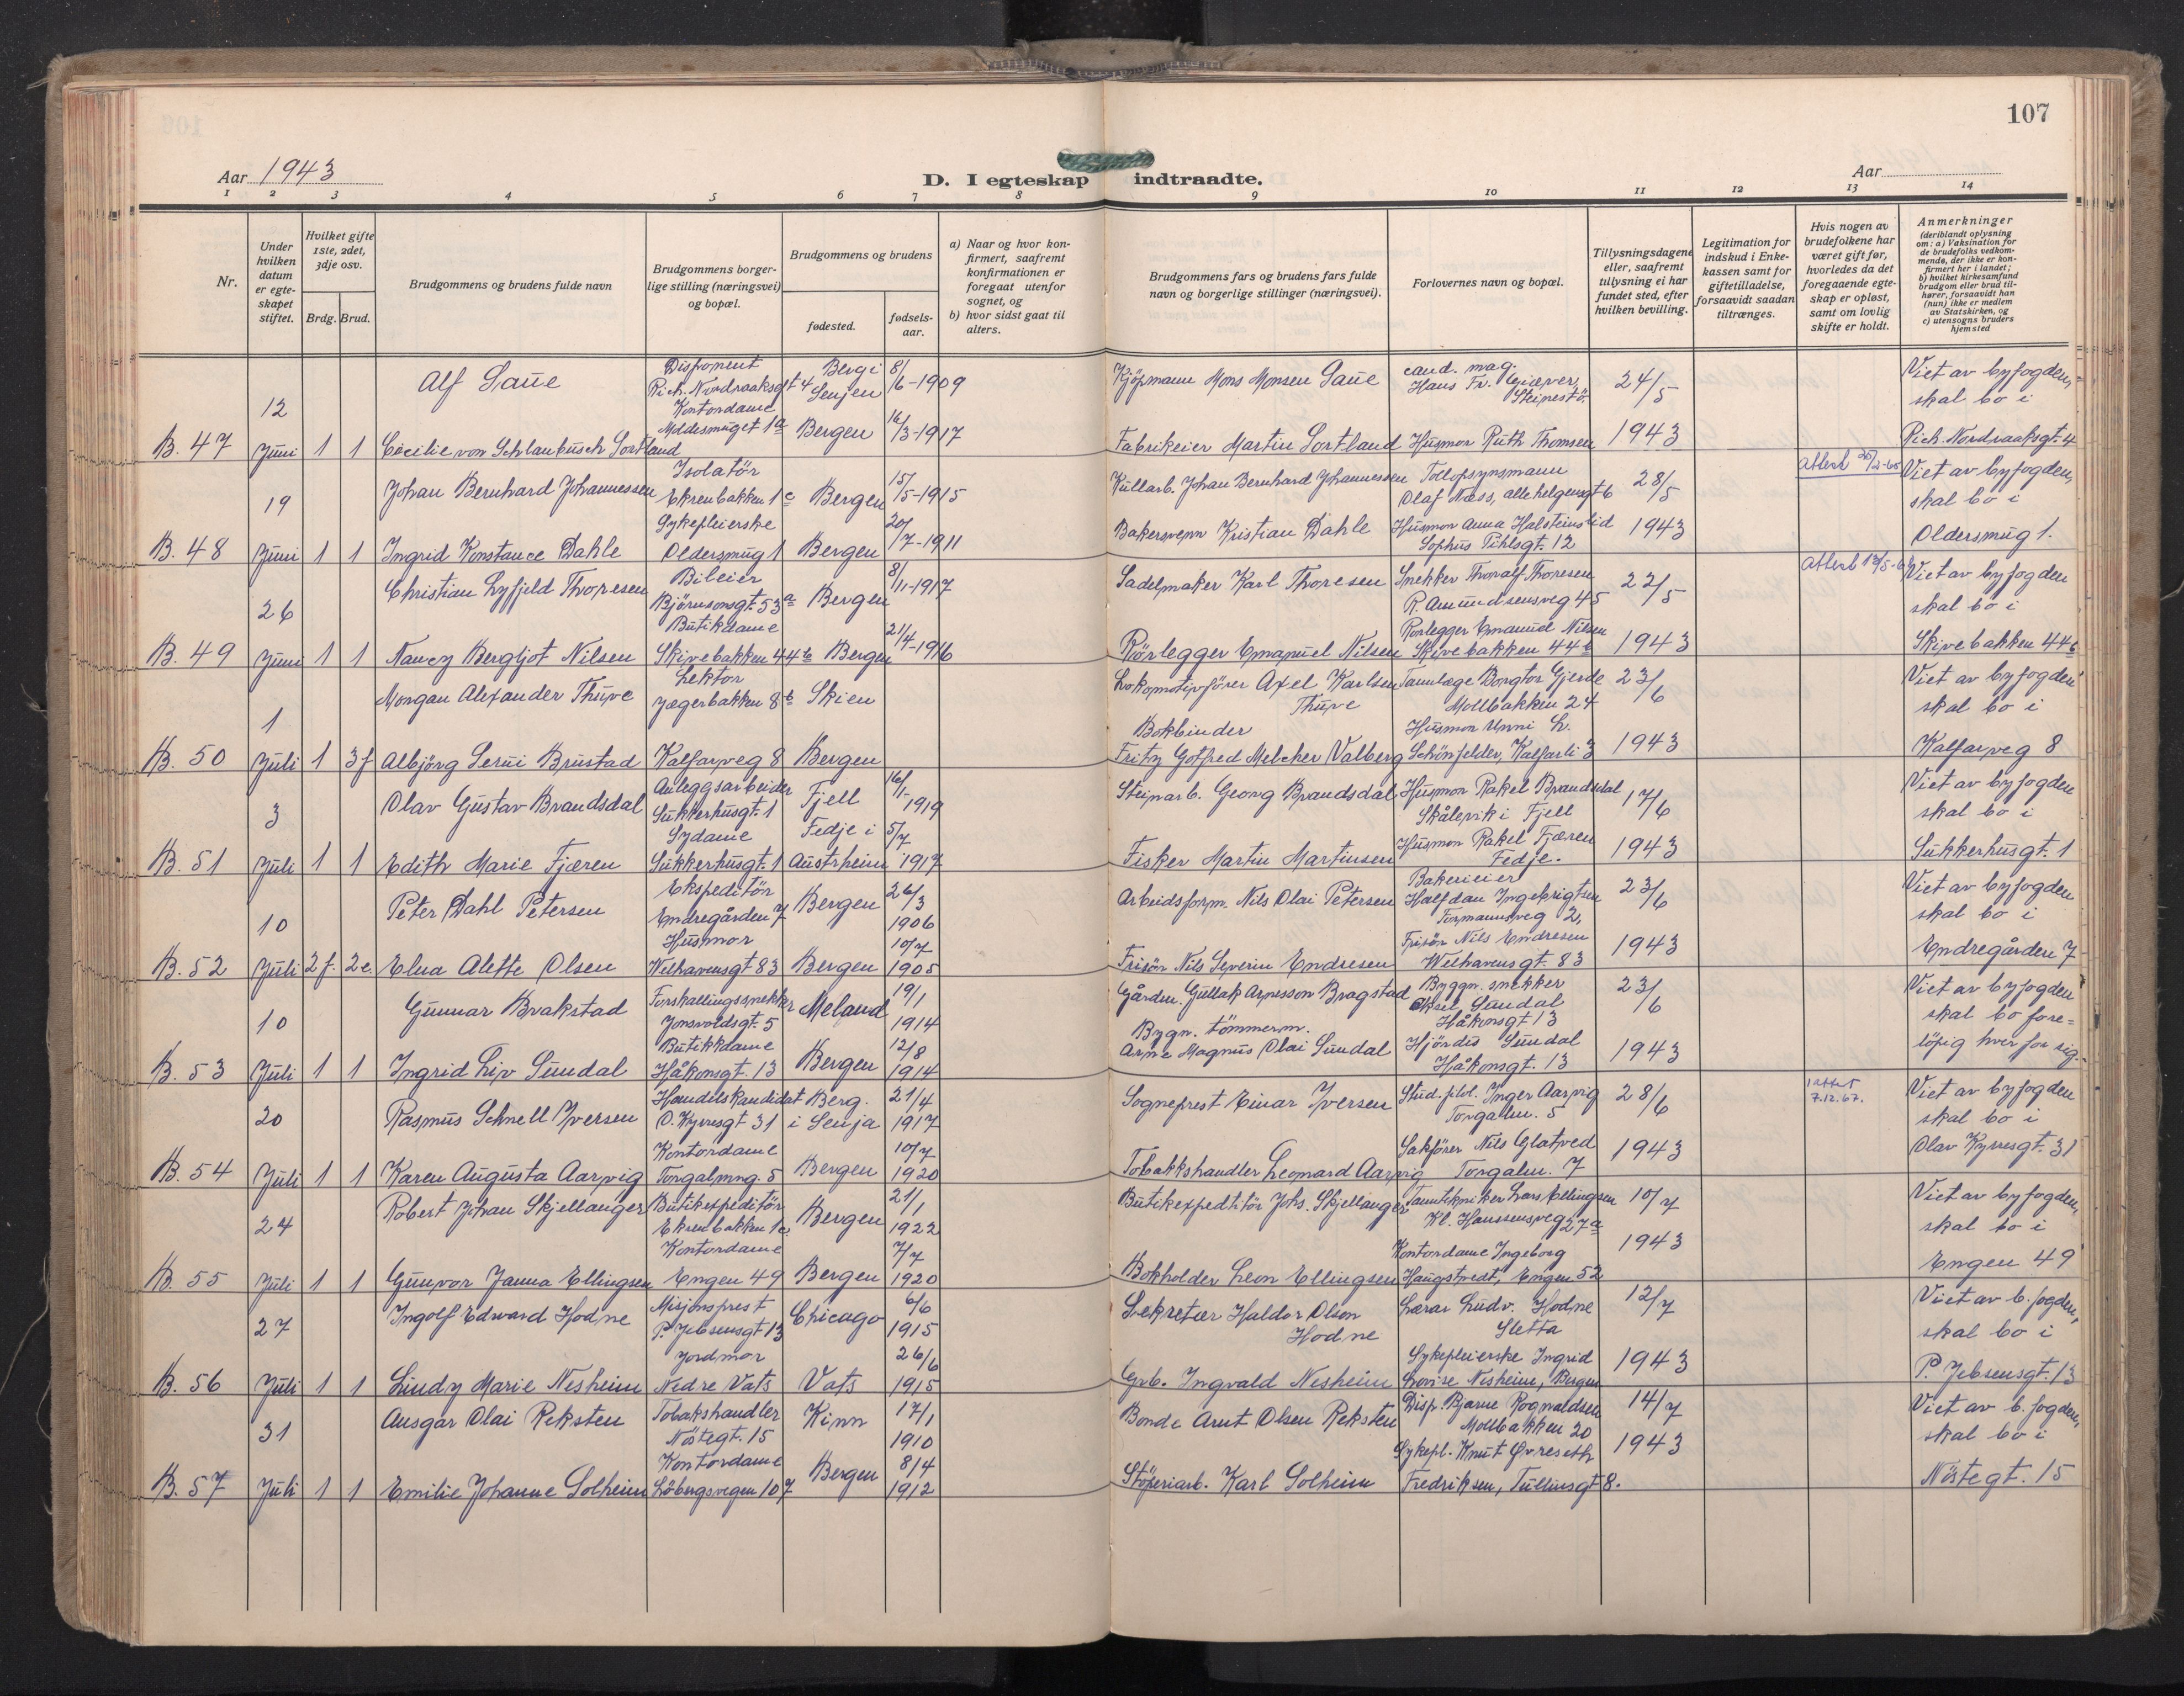 107
Aar 1943
D. I egteskap indtraadte.
Aar
1 2 3 4 5 6 7 8 9 10 11 12 13 14
Nr.
Under hvilken datum er egteskapet stiftet.
Hvilket gifte 1ste, 2det, 3dje osv.
Brdg. Brud.
Brudgommens og brudens fulde navn
Brudgommens borgerlige stilling (næringsvei) og bopæl.
Brudgommens og brudens
fødested.
fødselsaar.
a) Naar og hvor konfirmert, saafremt konfirmationen er foregaat utenfor sognet, og
b) hvor sidst gaat til alters.
Brudgommens fars og brudens fars fulde navn og borgerlige stillinger (næringsvei).
Forlovernes navn og bopæl.
Tillysningsdagene eller, saafremt tillysning ei har fundet sted, efter hvilken bevilling.
Legitimation for indskud i Enkekassen samt for giftetilladelse, forsaavidt saadan tiltrænges.
Hvis nogen av brudefolkene har været gift før, hvorledes da det foregaaende egteskap er opløst, samt om lovlig skifte er holdt.
Anmerkninger
(deriblandt oplysning om: a) Vaksination for de brudefolks vedkommende, der ikke er konfirmert her i landet; b) hvilket kirkesamfund brudgom eller brud tilhører, forsaavidt han (hun) ikke er medlem av Statskirken, og c) utensogns bruders hjemsted
B. 47 12 Juni 1 1
Alf Saue
Disponent Rich. Nordraaksgt 4
Berg i Senjen 8/6-1909
Kjøpmann Mons Monsen Saue
cand. mag. Hans Fr. Giæver, Steinestø.
24/5 1943
Cecilie von Schlanbusch Sortland
Kontordame Moldesmuget 1a
Bergen 16/3-1917
Fabrikeier Martin Sortland
Husmor Ruth Thomsen
Viet av byfogden, skal bo i Rich. Nordraaksgt. 4
B. 48 19 Juni 1 1
Johan Bernhard Johannessen
Isolatör Ekrenbakken 1c
Bergen 15/5-1915
Kullarb. Johan Bernhard Johannessen
Tollopsynsmann Olaf Næss, allehelgensgt 6
28/5 1943
Ingrid Konstance Dahle
Sykepleierske Oldersmug 1
Bergen 20/7-1911
Bakersvenn Kristian Dahle
Husmor Anna Halsteinslid Sophus Pihlsgt. 12
Viet av byfogden, skal bo i Oldersmug 1.
B. 49 26 Juni 1 1
Christian Lyfjeld Thoresen
Bileier Bjørnsonsgt. 53a
Bergen 8/11-1917
Sadelmaker Karl Thoresen
Snekker Thoralf Thoresen R. Amundsensveg 45
22/5 1943
Nancy Bergljot Nilsen
Butikdame Skivebakken 44b
Bergen 21/4-1916
Rørlegger Emanuel Nilsen
Rørlegger Emanuel Nilsen Skivebakken 44b
Viet av byfogden skal bo i Skivebakken 44b
B. 50 1 Juli 1 3f
Morgan Alexander Thuve
Lektor Jægerbakken 8b
Skien
Lokomotivfører Axel Karlsen Thuve
Tannlæge Borgtor Gjerde Mollbakken 24
23/6 1943
Albjörg Serui Brustad
Kalfarveg 8
Bergen
Bokbinder Fritz Gotfred Melcher Valberg
Husmor Unni L. Schönfelder, Kalfarli 3
Viet av byfogden skal bo i Kalfarveg 8
B. 51 3 Juli 1 1
Olav Gustav Brandsdal
Anleggsarbeider Sukkerhusgt. 1
Fjell 16/1-1919
Steinarb. Georg Brandsdal
Husmor Rakel Brandsdal Skålevik i Fjell
17/6 1943
Edith Marie Fjæren
Sydame Sukkerhusgt. 1
Fedje i Austrheim 5/7 1917
Fisker Martin Martinsen
Husmor Rakel Fjæren Fedje.
Viet av byfogden skal bo i Sukkerhusgt. 1
B. 52 10 Juli 2f. 2e.
Peter Dahl Petersen
Ekspeditör Endregården 7
Bergen 26/3 1906
Arbeidsform. Nils Olai Petersen
Bakerieier Halfdan Ingebrigtsen Formannsveg 2,
23/6 1943
Elna Alette Olsen
Husmor Welhavensgt 83
Bergen 10/7 1905
Frisör Nils Severin Endresen
Frisör Nils Endresen Welhavensgt. 83
Viet av byfogden skal bo i Endregården 7
B. 53 10 Juli 1 1
Gunnar Brakstad
Forskallingssnekker Jonsvoldsgt. 5
Meland 19/1 1914
Gårdbr. Gullak Arnesson Bragstad
Byggn. snekker Aksel Sundal Håkonsgt 13
23/6 1943
Ingrid Liv Sundal
Butikkdame Håkonsgt. 13
Bergen 12/8 1914
Bygn. tömmerm. Arne Magnus Olai Sundal
Hjördis Sundal Håkonsgt. 13
Viet av byfogden skal bo foreløpig hver for sig.
B. 54 20 Juli 1 1
Rasmus Schnell Iversen
Handelskandidat O. Kyrresgt 31
Berg. i Senja 21/4 1917
Sogneprest Einar Iversen
Stud. phil. Inger Aarvig Torgalm. 5
28/6 1943
7.12.67.
Karen Augusta Aarvig
Kontordame Torgalmng. 5
Bergen 10/7 1920
Tobakkshandler Leonard Aarvig
Sakfører Nils Glatved Torgalm. 7
Viet av byfogden skal bo i Olav Kyrresgt. 31
B. 55 24 Juli 1 1
Robert Johan Skjellanger
Butikexpeditör Ekrenbakken 1c
Bergen 21/1 1922
Butikexpeditör Johs. Skjellanger
Tanntekniker Lars Ellingsen Kl. Hanssensveg 27a
10/7 1943
Gunvor Janna Ellingsen
Kontordame Engen 49
Bergen 7/7 1920
Bokholder Leon Ellingsen
Kontordame Ingeborg Haugstvedt, Engen 52
Viet av byfogden, skal bo i Engen 49
B. 56 27 Juli 1 1
Ingolf Edward Hodne
Misjonsprest P. Jebsensgt 13
Chicago 6/6 1915
Sekretær Haldor Olson Hodne
Lærar Ludv. Hodne Sletta
12/7 1943
Lindy Marie Nesheim
Jordmor Nedre Vats
Vats 26/6 1915
Grb. Ingvald Nesheim
Sykepleierske Ingrid Lovise Nesheim, Bergen
Viet av b. fogden, skal bo i P. Jebsensgt. 13
B. 57 31 Juli 1 1
Ansgar Olai Reksten
Tobakshandler Nöstegt. 15
Kinn 17/1 1910
Bonde Arnt Olsen Reksten
Disp. Bjarne Rognaldsen Mollbakken 20
14/7 1943
Emilie Johanne Solheim
Kontordame Löbergsvegen 107
Bergen 8/4 1912
Stöperiarb. Karl Solheim
Sykepl. Knut Øvreseth Fredriksen, Tullinsgt 8.
Viet av b. fogden, skal bo i Nöstegt. 15